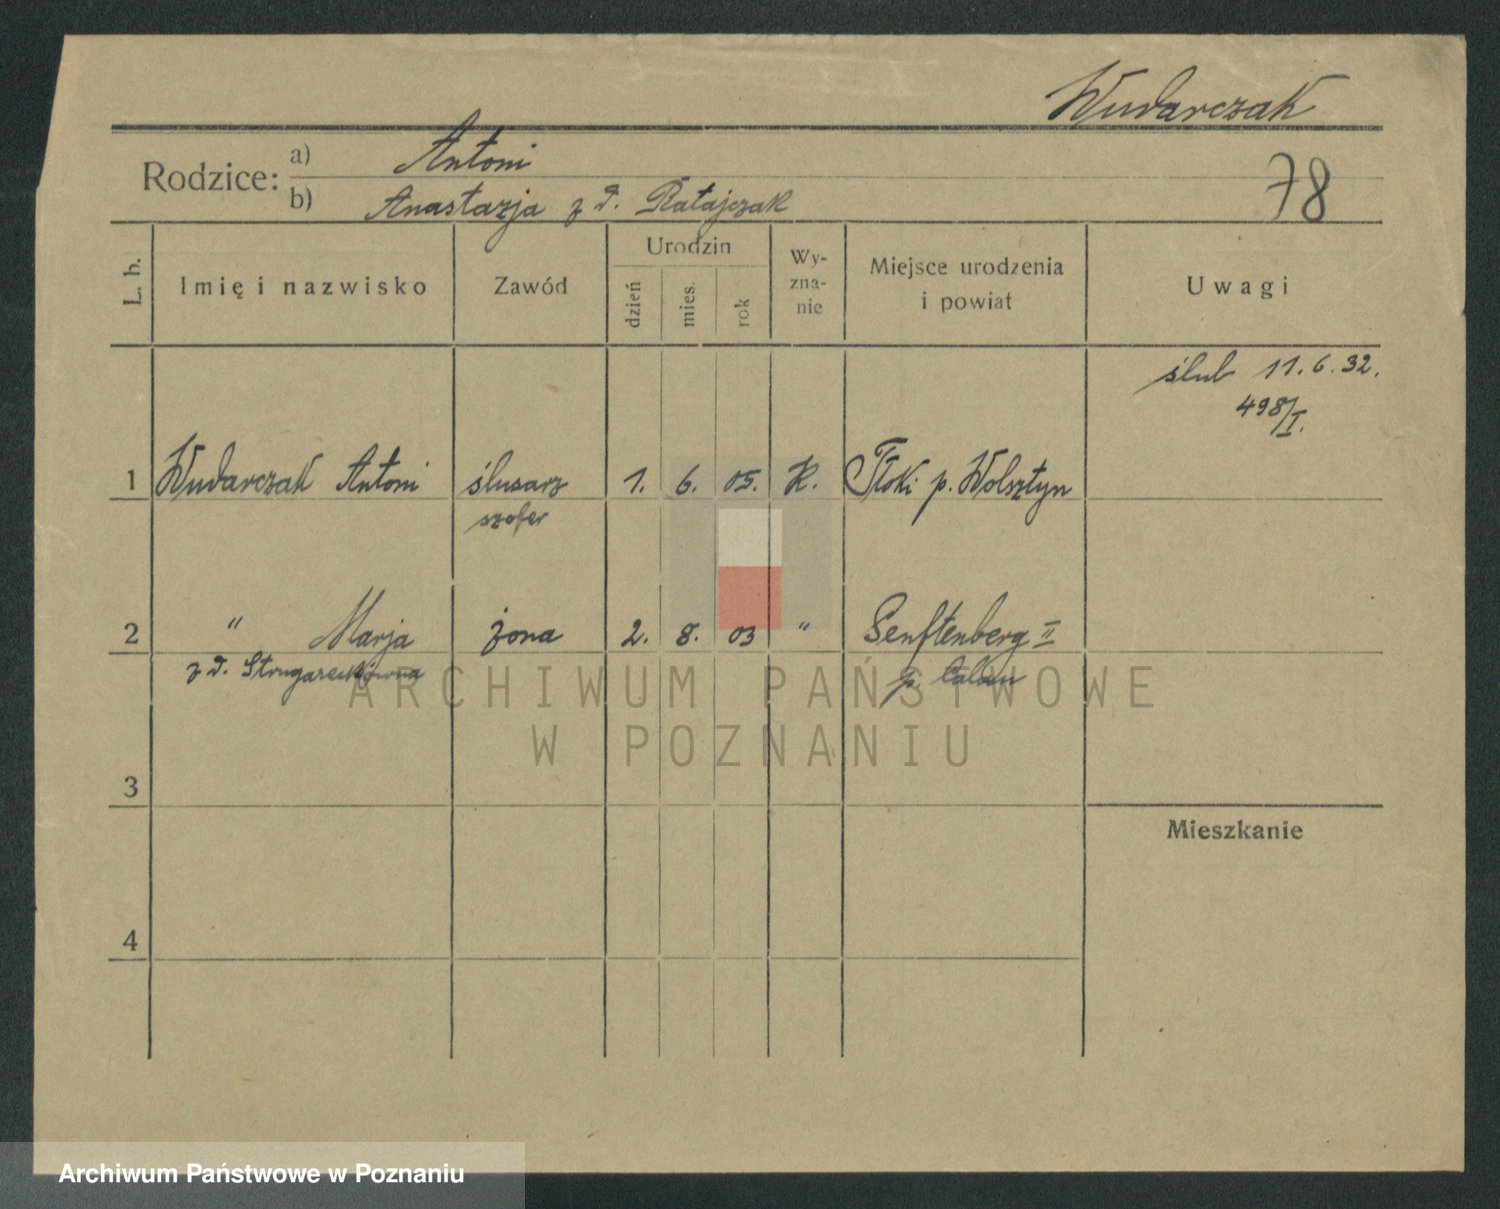 Wudarczak
Rodzice: a) Antoni
b) Anastazja z d. Ratajczak
78
L. b.
Imię i nazwisko
Zawód
Urodzin
dzień
mies.
rok
Wy-
zna-
nie
Miejsce urodzenia
i powiat
Uwagi
ślub 11. 6. 32.
498/I.
1 Wudarczak Antoni ślusarz 1. 6. 05. K. Tłoki p. Wolsztyn
szofer
2 " Marja żona 2. 8. 03 " Senftenberg II
z d. Strugarekówna p. Calau
3
Mieszkanie
4
ARCHIWUM PAŃSTWOWE
W POZNANIU
Archiwum Państwowe w Poznaniu